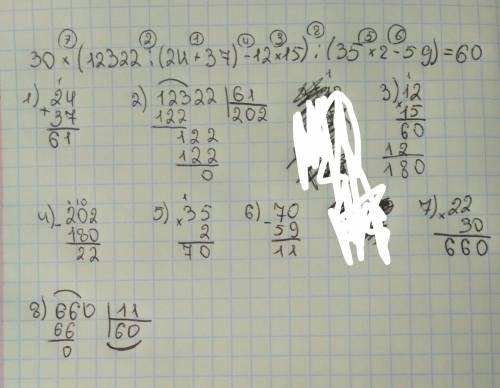 ⑦ ② ① ④ ③ ⑧ ⑤ ⑥
30 × (12322 : (24 + 37) - 12 × 15) : (35 × 2 - 59) = 60
1) 24 2) 12322 | 61 3) 12
+ 37 122 | 202 × 15
61 122 60
122 12
0 180
4) - 202 5) × 35 6) - 70 7) × 22
180 2 59 30
22 70 11 660
8) 660 | 11
66 | 60
0